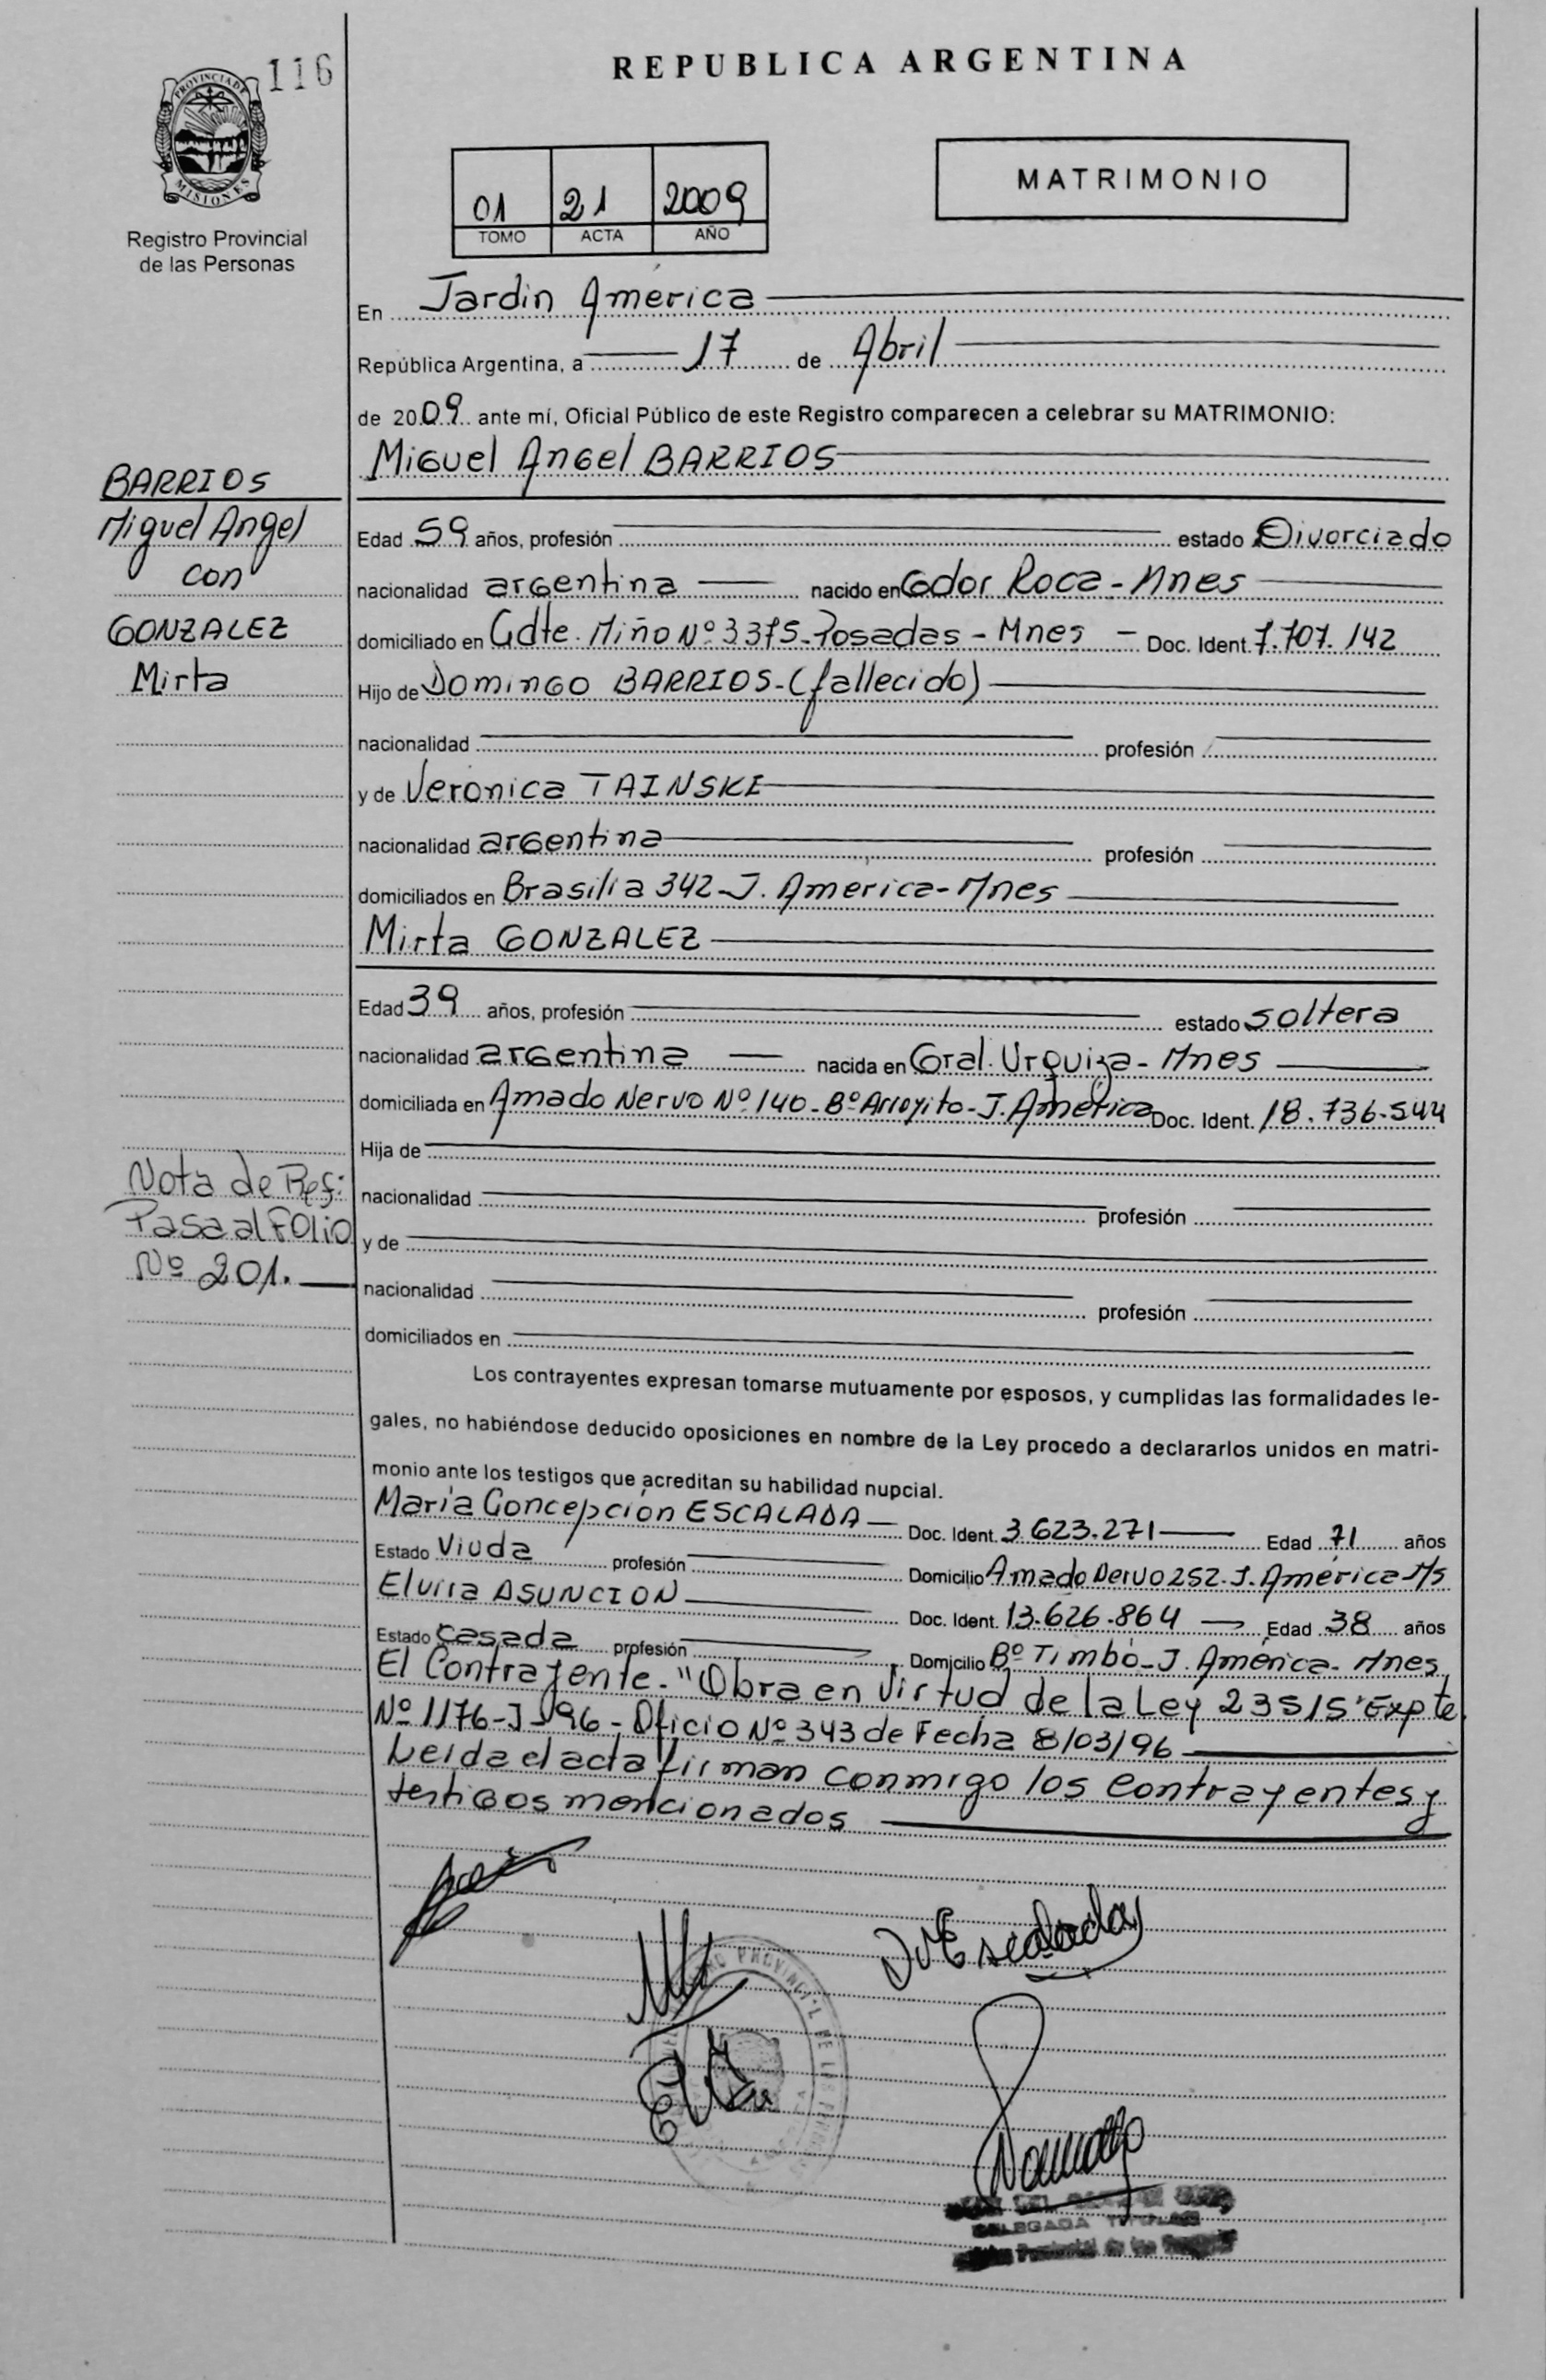 116
REPUBLICA ARGENTINA
PROVINCIA DE
MISIONES
Registro Provincial
de las Personas
01 21 2009
TOMO ACTA AÑO
MATRIMONIO
En Jardin América
República Argentina, a 17 de Abril
de 2009 ante mí, Oficial Público de este Registro comparecen a celebrar su MATRIMONIO:
Miguel Angel BARRIOS
BARRIOS
Miguel Angel
con
GONZALEZ
Mirta
Edad 59 años, profesión estado Divorciado
nacionalidad argentina nacido en Gdor Roca - Mnes
domiciliado en Cdte. Miño Nº 3375 - Posadas - Mnes - Doc. Ident. 7.707.142
Hijo de Domingo BARRIOS - (fallecido)
nacionalidad profesión
y de Veronica TAINSKE
nacionalidad argentina profesión
domiciliados en Brasilia 342 - J. America - Mnes
Mirta GONZALEZ
Edad 39 años, profesión estado soltera
nacionalidad argentina nacida en Gral. Urquiza - Mnes
domiciliada en Amado Nervo Nº 140 - Bº Arroyito - J. América Doc. Ident. 18.736.544
Hija de
nacionalidad profesión
y de
nacionalidad profesión
domiciliados en
Nota de Ref:
Pasa al Folio
Nº 201.
Los contrayentes expresan tomarse mutuamente por esposos, y cumplidas las formalidades le-
gales, no habiéndose deducido oposiciones en nombre de la Ley procedo a declararlos unidos en matri-
monio ante los testigos que acreditan su habilidad nupcial.
Maria Concepción ESCALADA Doc. Ident. 3.623.271 Edad 71 años
Estado Viuda profesión Domicilio Amado Nervo 252 - J. América Ms
Elvira ASUNCION Doc. Ident. 13.626.864 Edad 38 años
Estado casada profesión Domicilio Bº Timbó - J. América - Mnes
El Contrayente - "Obra en Virtud de la Ley 23515" Expte
Nº 1176-J-96 - Oficio Nº 343 de Fecha 8/03/96
Leida el acta firman conmigo los contrayentes y
testigos mencionados
Escalada
DELEGADA TITULAR
Provincial de las